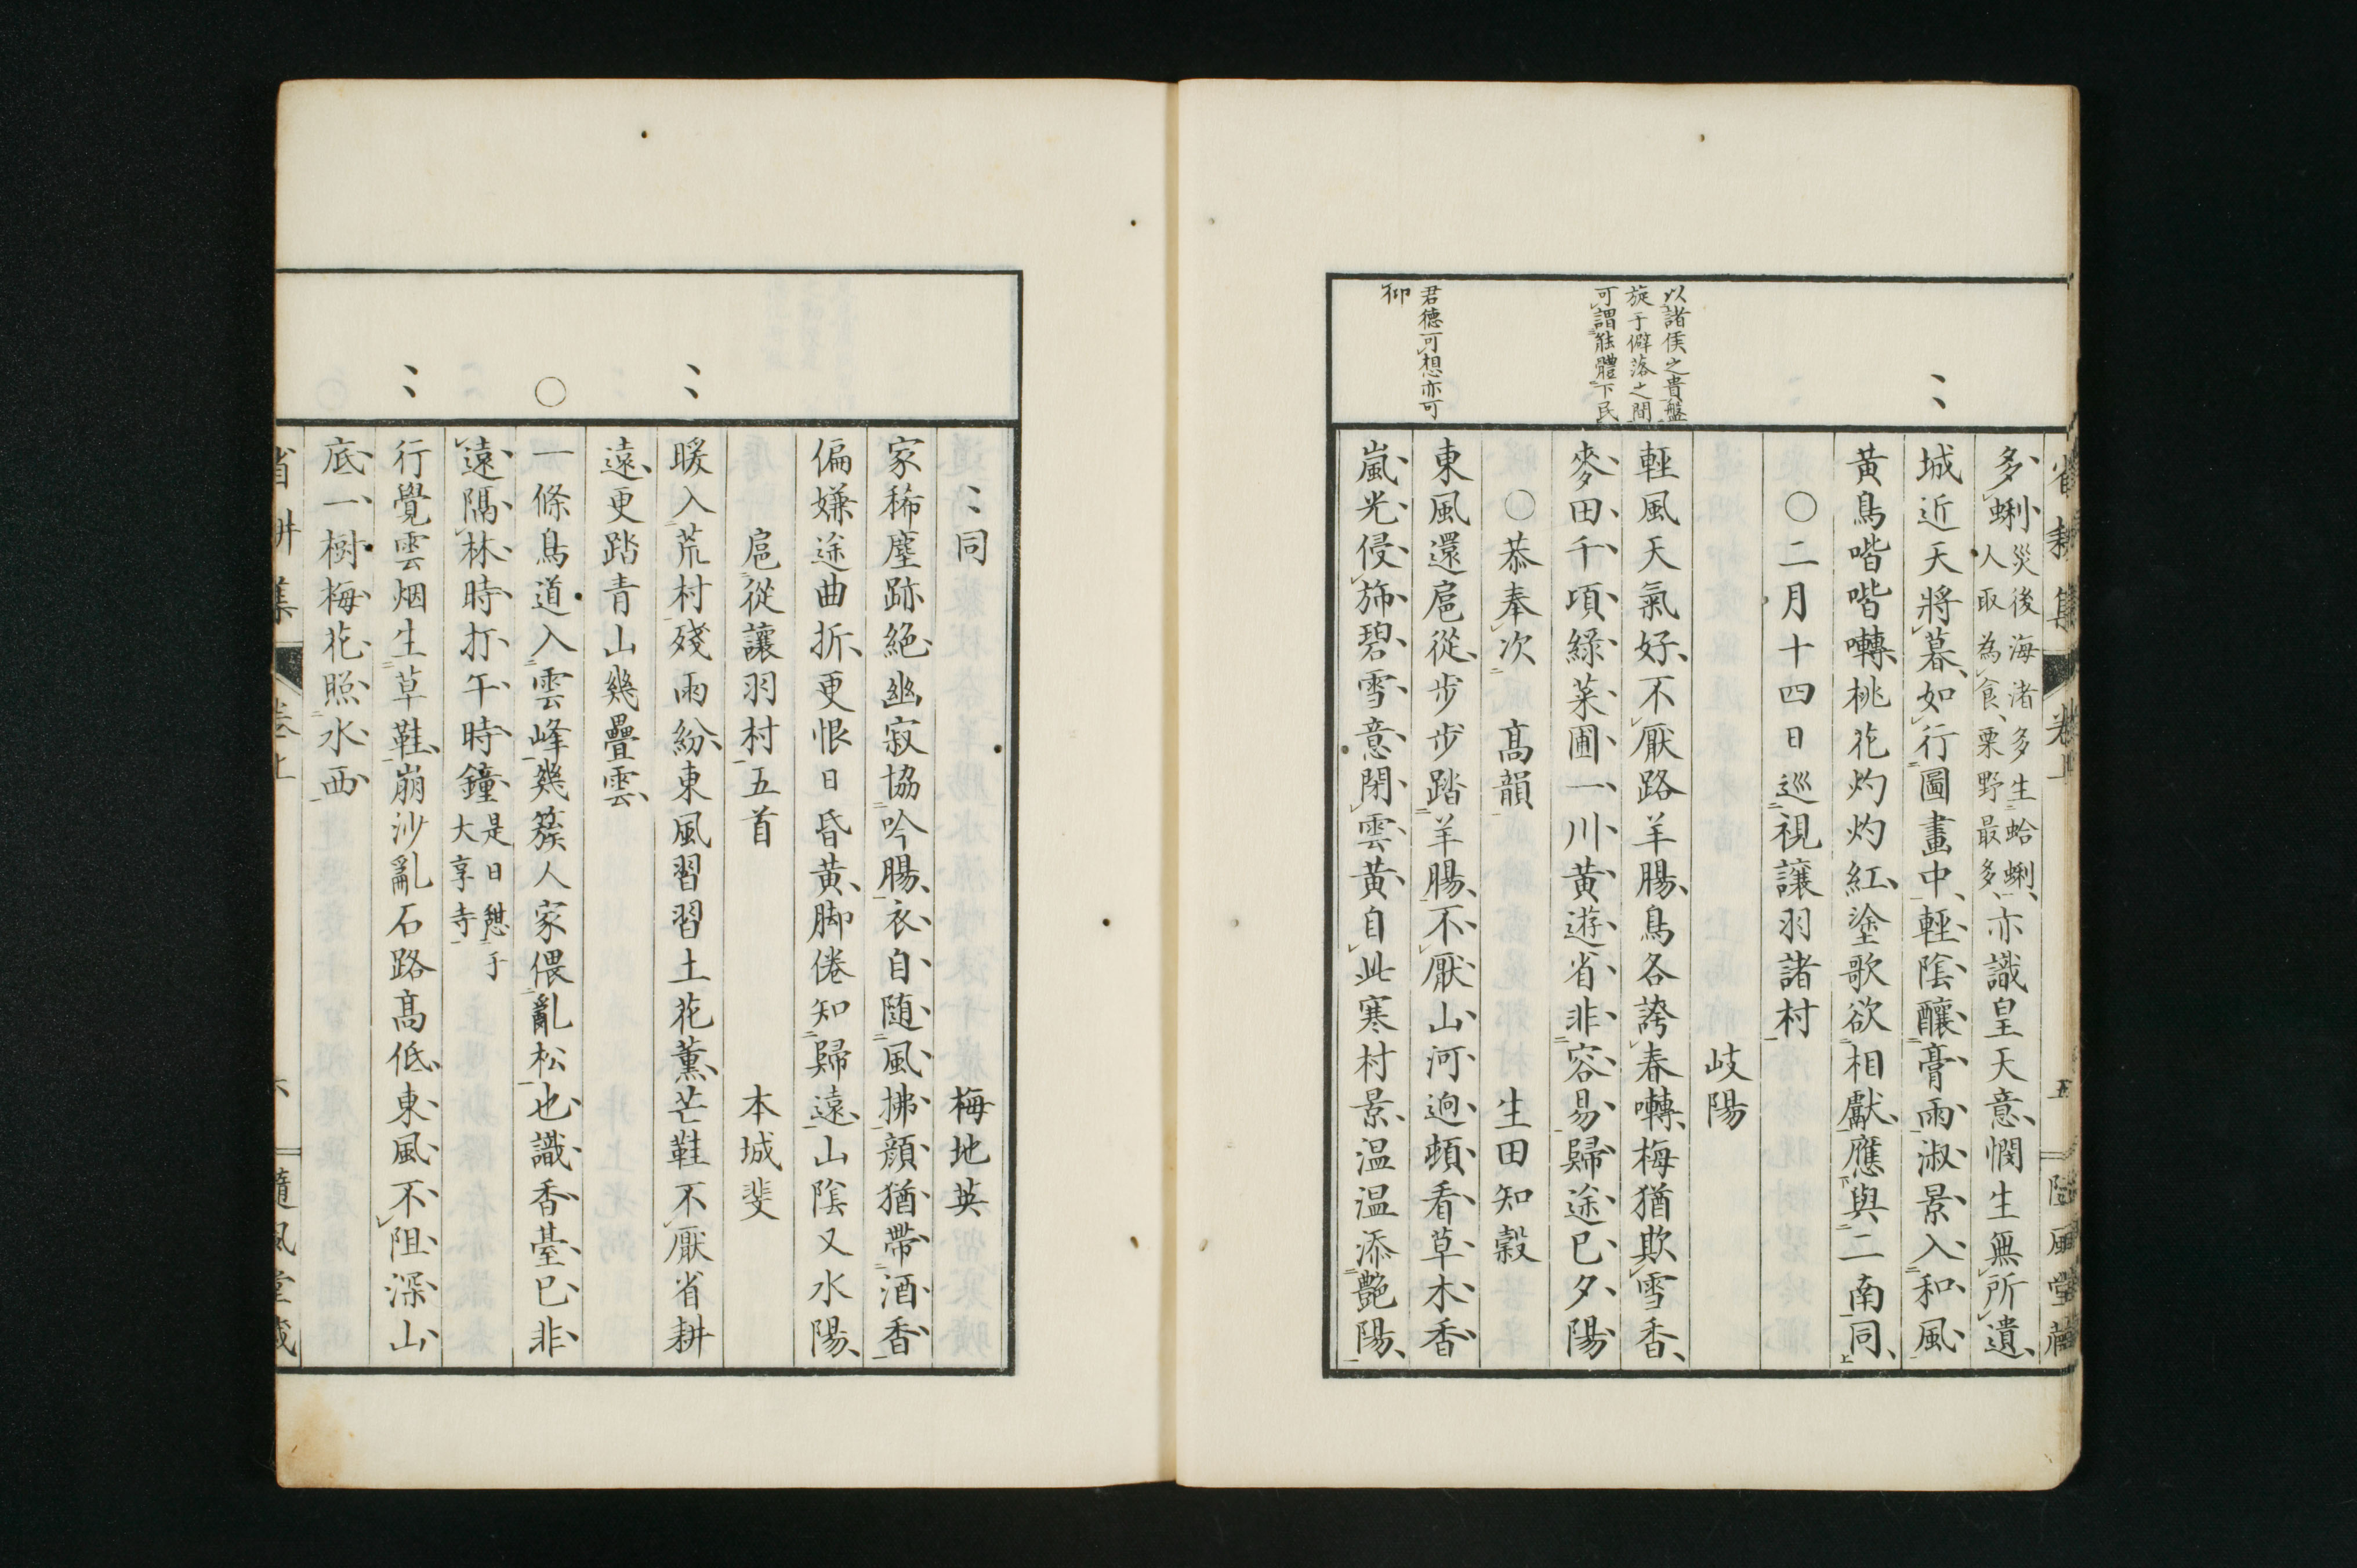 省耕集 卷上 五 隨風堂藏
多蜊災後海渚多生蛤蜊、人取為食、栗野最多、亦識皇天意憫生無所遺、
城近天將暮、如行圖畫中、輕陰釀膏雨淑景入和風
黃鳥喈喈囀桃花灼灼紅、塗歌欲相獻、應與二南同、
〇二月十四日巡視讓羽諸村
岐陽
輕風天氣好、不厭路羊腸、鳥各誇春囀、梅猶欺雪香、
麥田千項綠菜圃一川黃遊省非容易歸途已夕陽
〇恭奉次 高韻 生田知穀
東風還扈從、步步踏羊腸、不厭山河逈頓看草木香
嵐光侵旆碧雪意閉雲黃自此寒村景、温温添艷陽、
以諸侯之貴盤
旋于僻落之間
可謂能體下民
君德可想亦可
仰
同 梅地英
家稀塵跡絕、幽寂協吟腸、衣自随風拂顏猶帶酒香
偏嫌途曲折、更恨日昏黃、脚倦知歸遠山陰又水陽、
扈從讓羽村五首 本城斐
暖入荒村殘雨紛、東風習習土花薰、芒鞋不厭省耕
遠、更踏青山幾疊雲、
〇
一條鳥道入雲峰幾簇人家偎亂松也識香臺已非
遠隔林時打午時鐘是日憩于大享寺
行覺雲烟生草鞋、崩沙亂石路高低、東風不阻深山
底一樹梅花照水西
省耕集 卷上 六 隨風堂藏